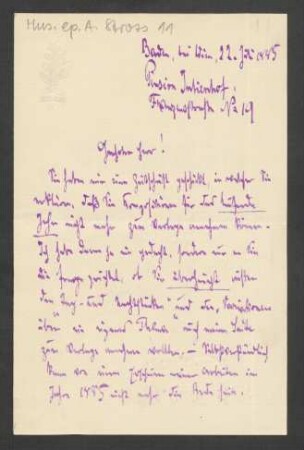 Mus. ep. A. Stross 11
Baden, bei Wien, 22. Juli 1885
Pension
Franzensstraße No 19
Geehrter Herr!
Sie haben mir eine Zuschrift geschickt, in welcher Sie
erklären, daß Sie Kompositionen für das laufende
Jahr nicht mehr zum Verlage annehmen können.
Ich habe daran ja nie gedacht, sondern nur an Sie
die Frage gerichtet, ob Sie überhaupt
den und die „Variationen
über ein eigenes Thema" auf meine Güte
zum Verlage annehmen wollten. – Selbstverständlich
kann von einem Erscheinen meiner Arbeiten im
Jahre 1885 nicht mehr die Rede sein.